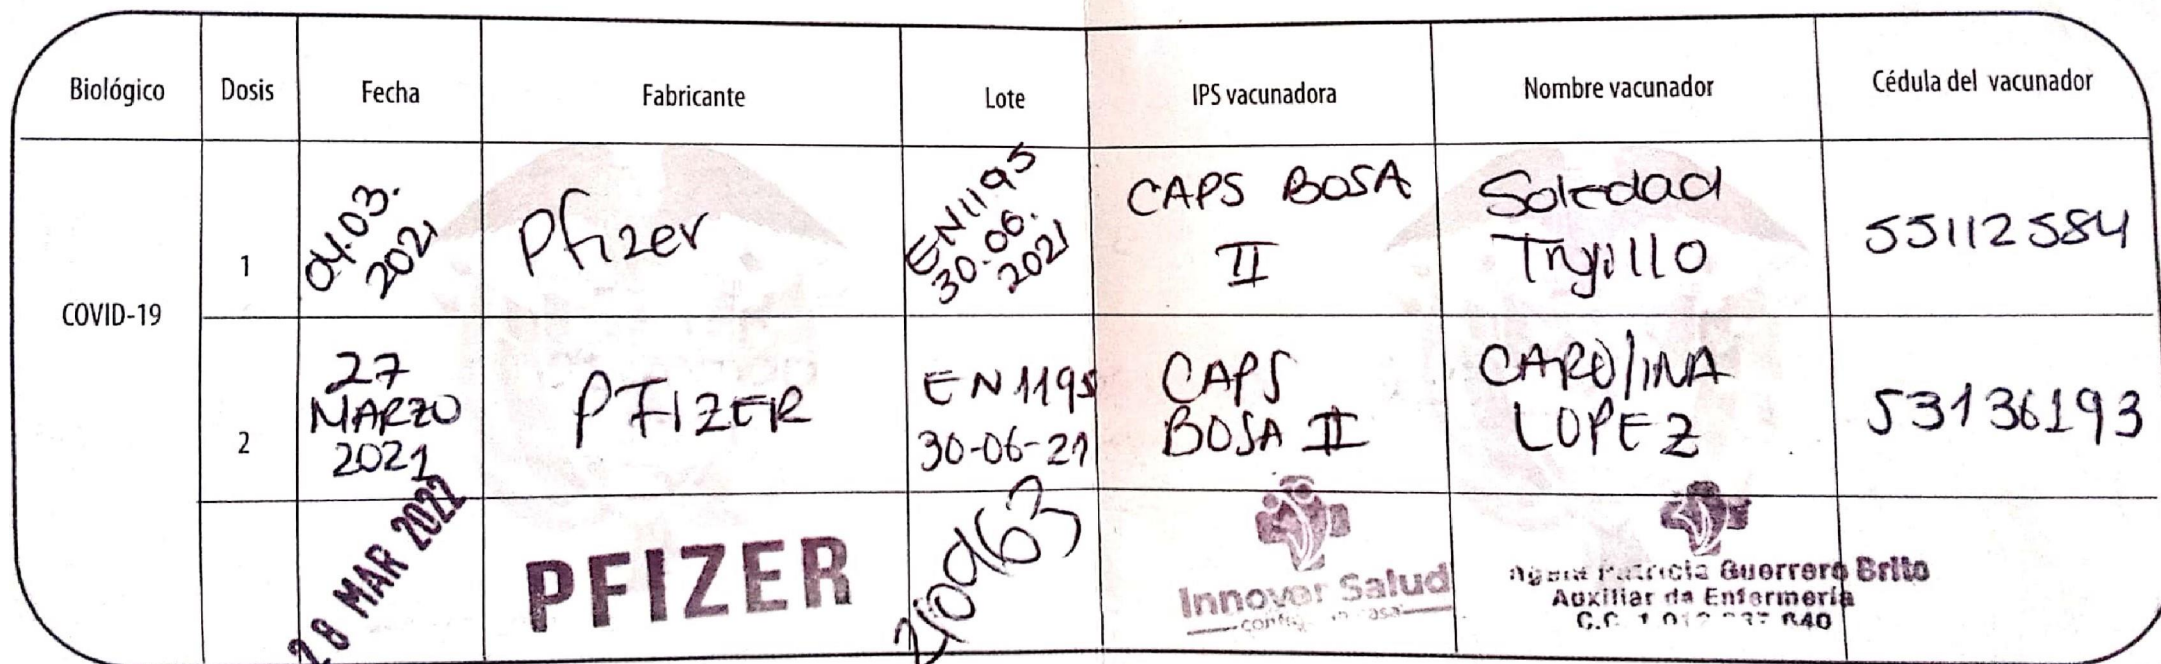 Biológico Dosis Fecha Fabricante Lote IPS vacunadora Nombre vacunador Cédula del vacunador
COVID-19
1
04.03.
2021
Pfizer
EN1195
30.06.
2021
CAPS BOSA
II
Soledad
Trujillo
55112584
2
27
MARZO
2021
PFIZER
EN1195
30-06-21
CAPS
BOSA II
CAROlINA
LOPEZ
53136193
28 MAR 2022
PFIZER
210963
Innovar Salud
Patricia Guerrero Brito
Auxiliar de Enfermería
C.C. 1 012 640